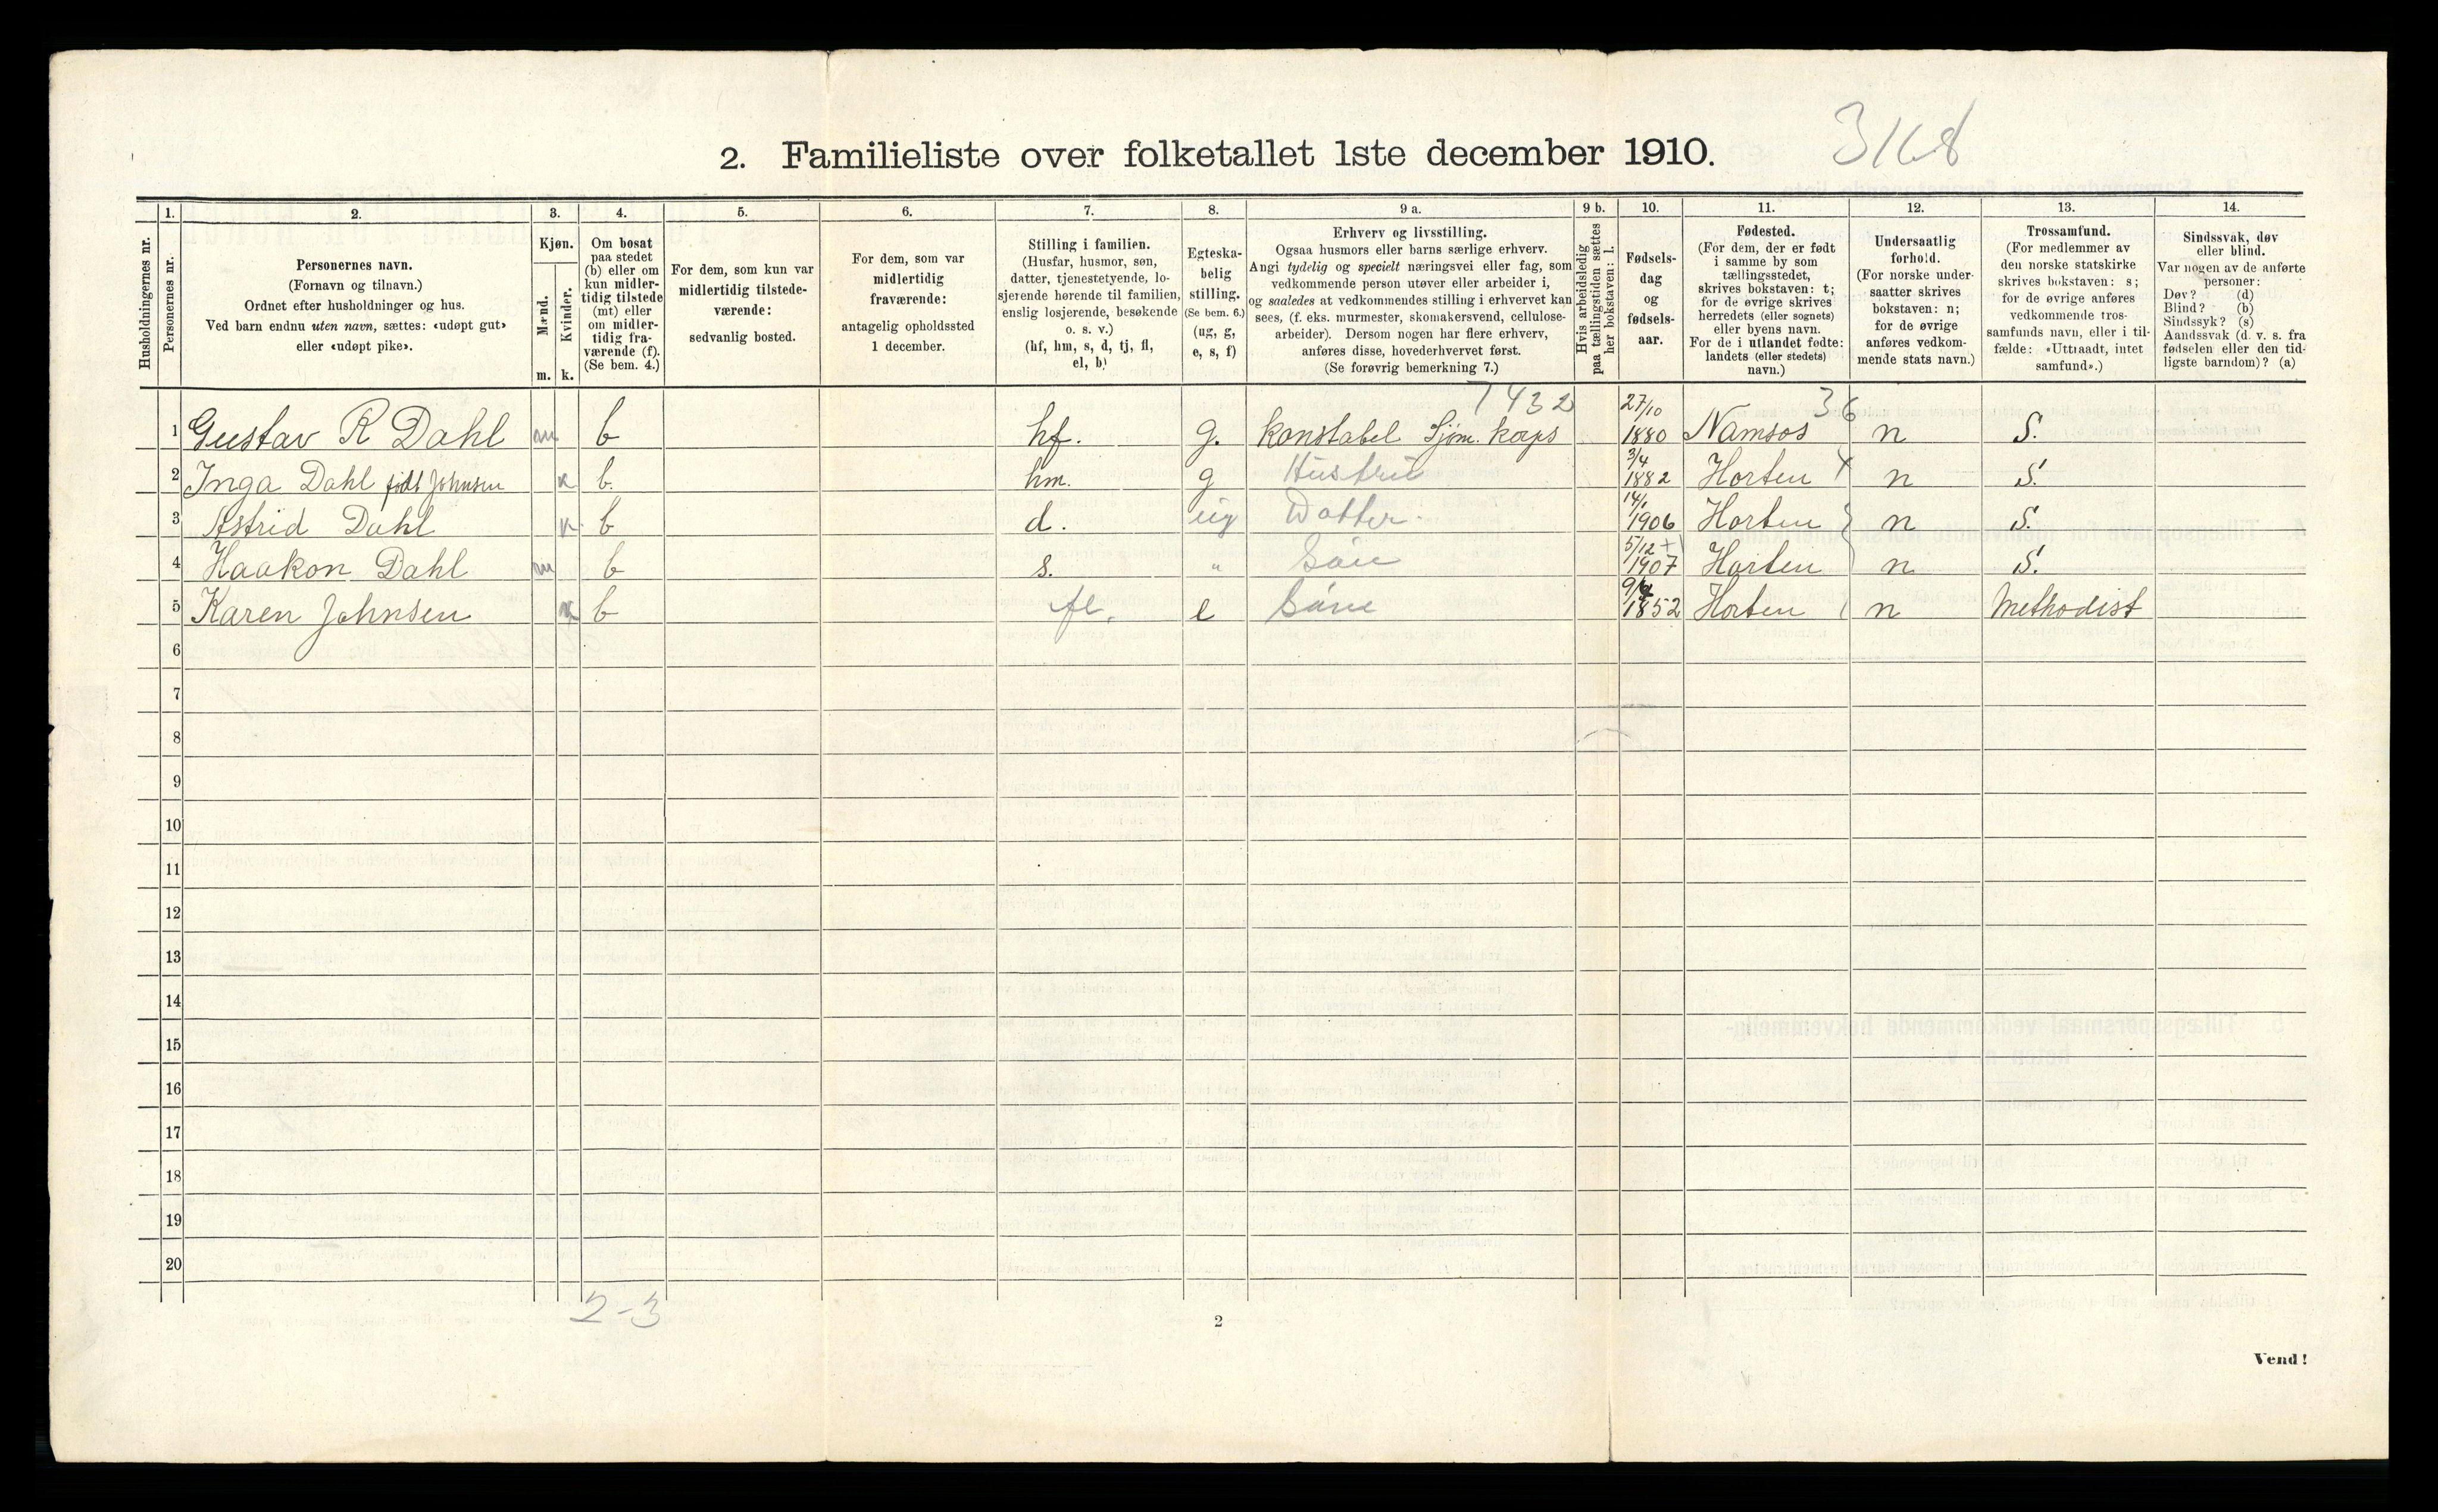 2. Familieliste over folketallet 1ste december 1910.
3168
Husholdningernes nr.
1.
Personernes nr.
2.
Personernes navn.
(Fornavn og tilnavn.)
Ordnet efter husholdninger og hus.
Ved barn endnu uten navn, sættes: «udøpt gut»
eller «udøpt pike».
3.
Kjøn.
Mænd.
Kvinder.
m. k.
4.
Om bosat
paa stedet
(b) eller om
kun midler-
tidig tilstede
(mt) eller
om midler-
tidig fra-
værende (f).
(Se bem. 4.)
5.
For dem, som kun var
midlertidig tilstede-
værende:
sedvanlig bosted.
6.
For dem, som var
midlertidig
fraværende:
antagelig opholdssted
1 december.
7.
Stilling i familien.
(Husfar, husmor, søn,
datter, tjenestetyende, lo-
sjerende hørende til familien,
enslig losjerende, besøkende
o. s. v.)
(hf, hm, s, d, tj, fl,
el, b)
8.
Egteska-
belig
stilling.
(Se bem. 6.)
(ug, g,
e, s, f)
9 a.
Erhverv og livsstilling.
Ogsaa husmors eller barns særlige erhverv.
Angi tydelig og specielt næringsvei eller fag, som
vedkommende person utøver eller arbeider i,
og saaledes at vedkommendes stilling i erhvervet kan
sees, (f. eks. murmester, skomakersvend, cellulose-
arbeider). Dersom nogen har flere erhverv,
anføres disse, hovederhvervet først.
(Se forøvrig bemerkning 7.)
9 b.
Hvis arbeidsledig
paa tællingstiden sættes
her bokstaven: l.
10.
Fødsels-
dag
og
fødsels-
aar.
11.
Fødested.
(For dem, der er født
i samme by som
tællingsstedet,
skrives bokstaven: t;
for de øvrige skrives
herredets (eller sognets)
eller byens navn.
For de i utlandet fødte:
landets (eller stedets)
navn.)
12.
Undersaatlig
forhold.
(For norske under-
saatter skrives
bokstaven: n;
for de øvrige
anføres vedkom-
mende stats navn.)
13.
Trossamfund.
(For medlemmer av
den norske statskirke
skrives bokstaven: s;
for de øvrige anføres
vedkommende tros-
samfunds navn, eller i til-
fælde: «Uttraadt, intet
samfund».)
14.
Sindssvak, døv
eller blind.
Var nogen av de anførte
personer:
Døv? (d)
Blind? (b)
Sindssyk? (s)
Aandssvak (d. v. s. fra
fødselen eller den tid-
ligste barndom)? (a)
7432
27/10
36
1 Gustav R Dahl m b hf. g. konstabel Sjøm. korps 1880 Namsos n S.
3/4
2 Inga Dahl født Johnsen k b. hm. g Hustru 1882 Horten n S.
14/1
3 Astrid Dahl k b d. ug Datter. 1906 Horten n S.
5/12 +1
4 Haakon Dahl m b s. " Søn 1907 Horten n S.
5 Karen Johnsen k b fl. e 1852 Horten n Methodist
6
7
8
9
10
11
12
13
14
15
16
17
18
19
20
2-3
2
Vend!